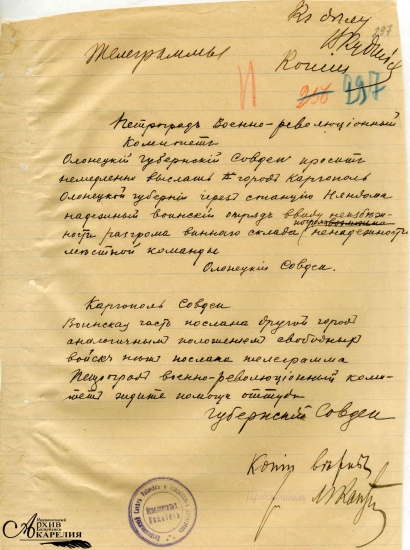 Къ дѣлу
297
Телеграммы
Копии
256 297
Петроградъ Военно-революціонный
Комитетъ
Олонецкій Губернскій Совдеп проситъ
немедленно выслать въ городъ Каргополь
Олонецкой губерніи черезъ станцію Няндома
надежный воинскій отрядъ ввиду неизбѣж-
ности разгрома виннаго склада (ненадежности
мѣстной команды
Олонецкій Совдеп.
Каргополь Совдеп
Воинская часть послана другой городъ
аналогичным положеніем свободных
войскъ нѣтъ послана телеграмма
Петроградъ военно-революціонный коми-
тетъ ждите помощи оттуда
Губернскій Совдеп
Копія вѣрна
Национальный
АРХИВ
Республики
КАРЕЛИЯ